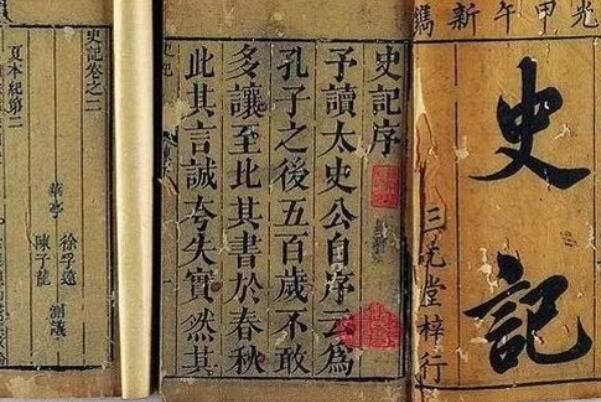 光甲午新鐫
史記
三元堂梓行
史記序
予讀太史公自序云為
孔子之後五百歲不敢
多讓至此其書於春秋
此其言誠夸失實然其
史記卷之二
夏本紀第二
華亭
徐孚遠
陳子龍
測議